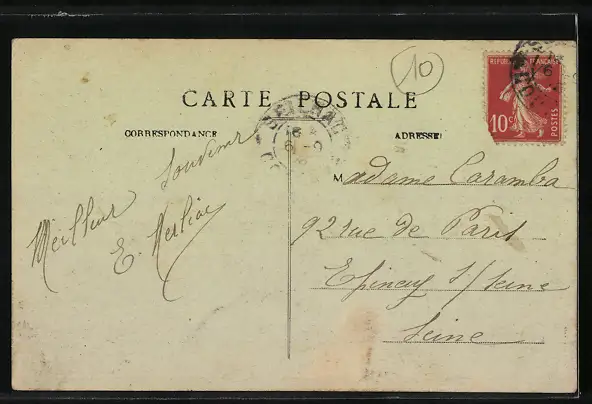 10
RÉPUBLIQUE FRANÇAISE
10c
POSTES
CARTE POSTALE
CORRESPONDANCE
ADRESSE
Meilleur Souvenir
E.
Madame Caramba
92 rue de Paris
Epinay s/ Seine
Seine